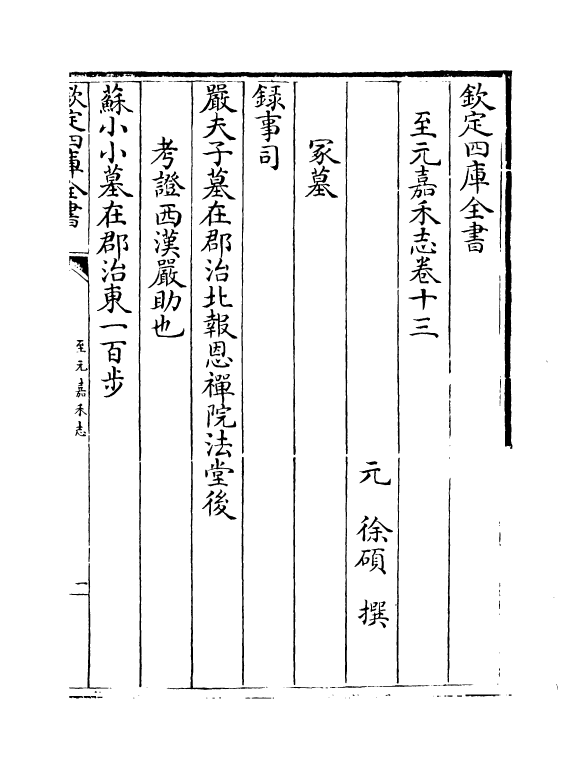 欽定四庫全書
至元嘉禾志卷十三
元 徐碩 撰
冢墓
録事司
嚴夫子墓在郡治北報恩禪院法堂後
考證西漢嚴助也
蘇小小墓在郡治東一百步
欽定四庫全書
至元嘉禾志
一